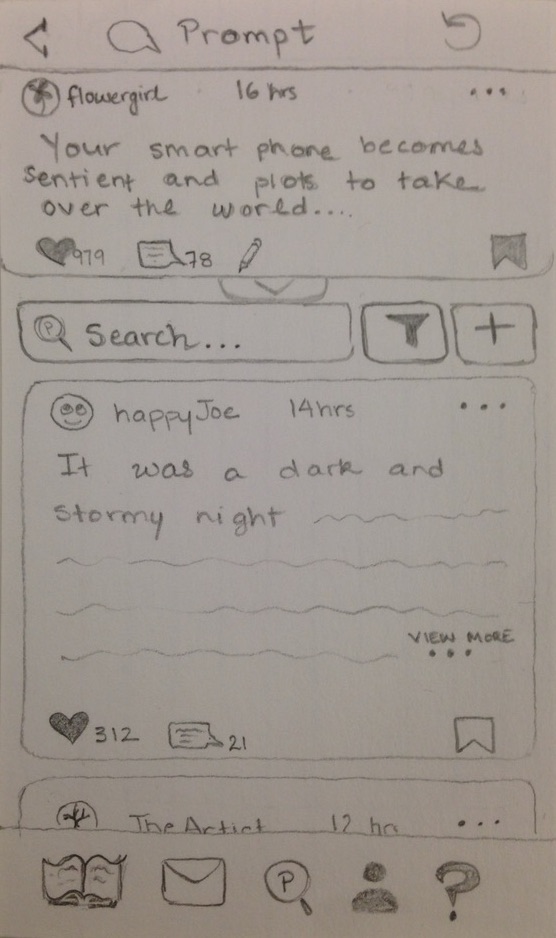 Prompt
flowergirl 16 hrs ...
Your smart phone becomes
Sentient and plots to take
over the world....
979 78
P Search...
+
happyJoe 14hrs ...
It was a dark and
Stormy night
VIEW MORE
...
312 21
The Artist 12 hr ...
P ?